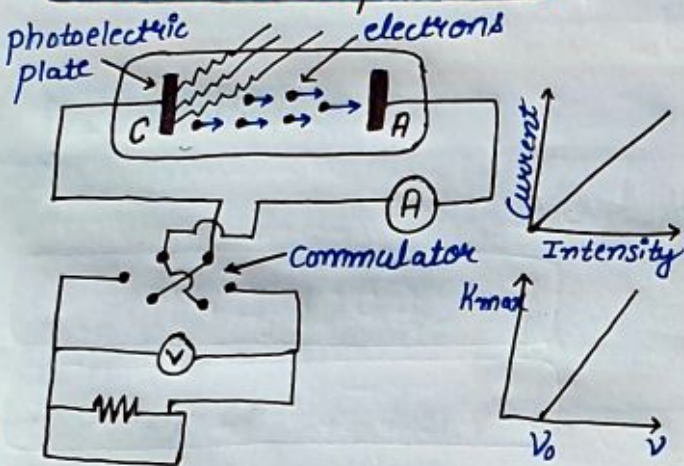 photoelectric
plate
electrons
C
A
A
Commulator
V
Current
Intensity
Kmax
V₀
ν